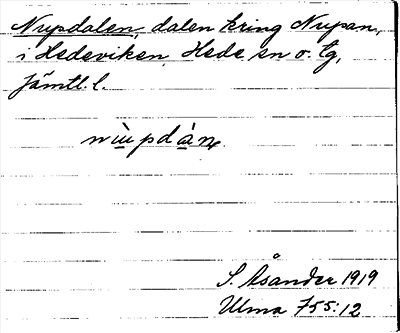 Nupdalen, dalen kring Nupan,
i Hedeviken, Hede sn o. tg,
Jämtl. l.
nùpdàn
S. Åsander 1919
Ulma 755:12